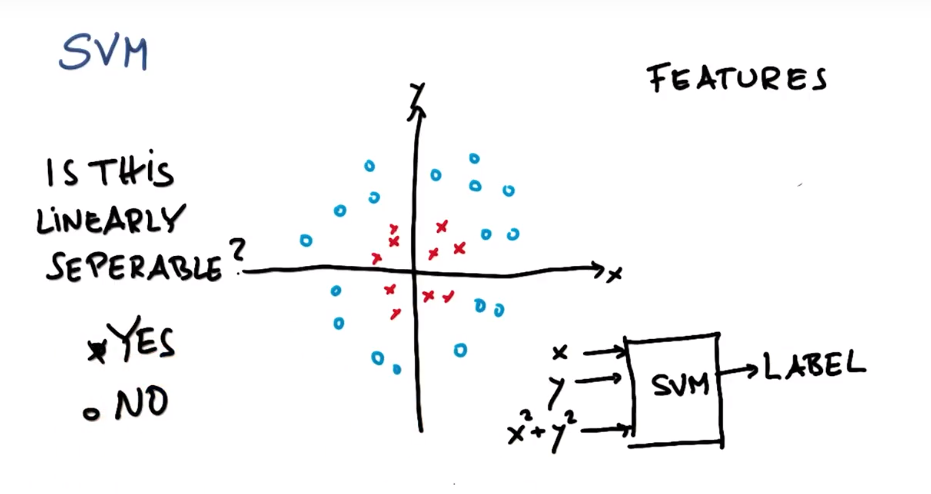 SVM
FEATURES
y
IS THIS
LINEARLY
SEPERABLE?
x
YES
NO
x
y
x²+y²
SVM
LABEL